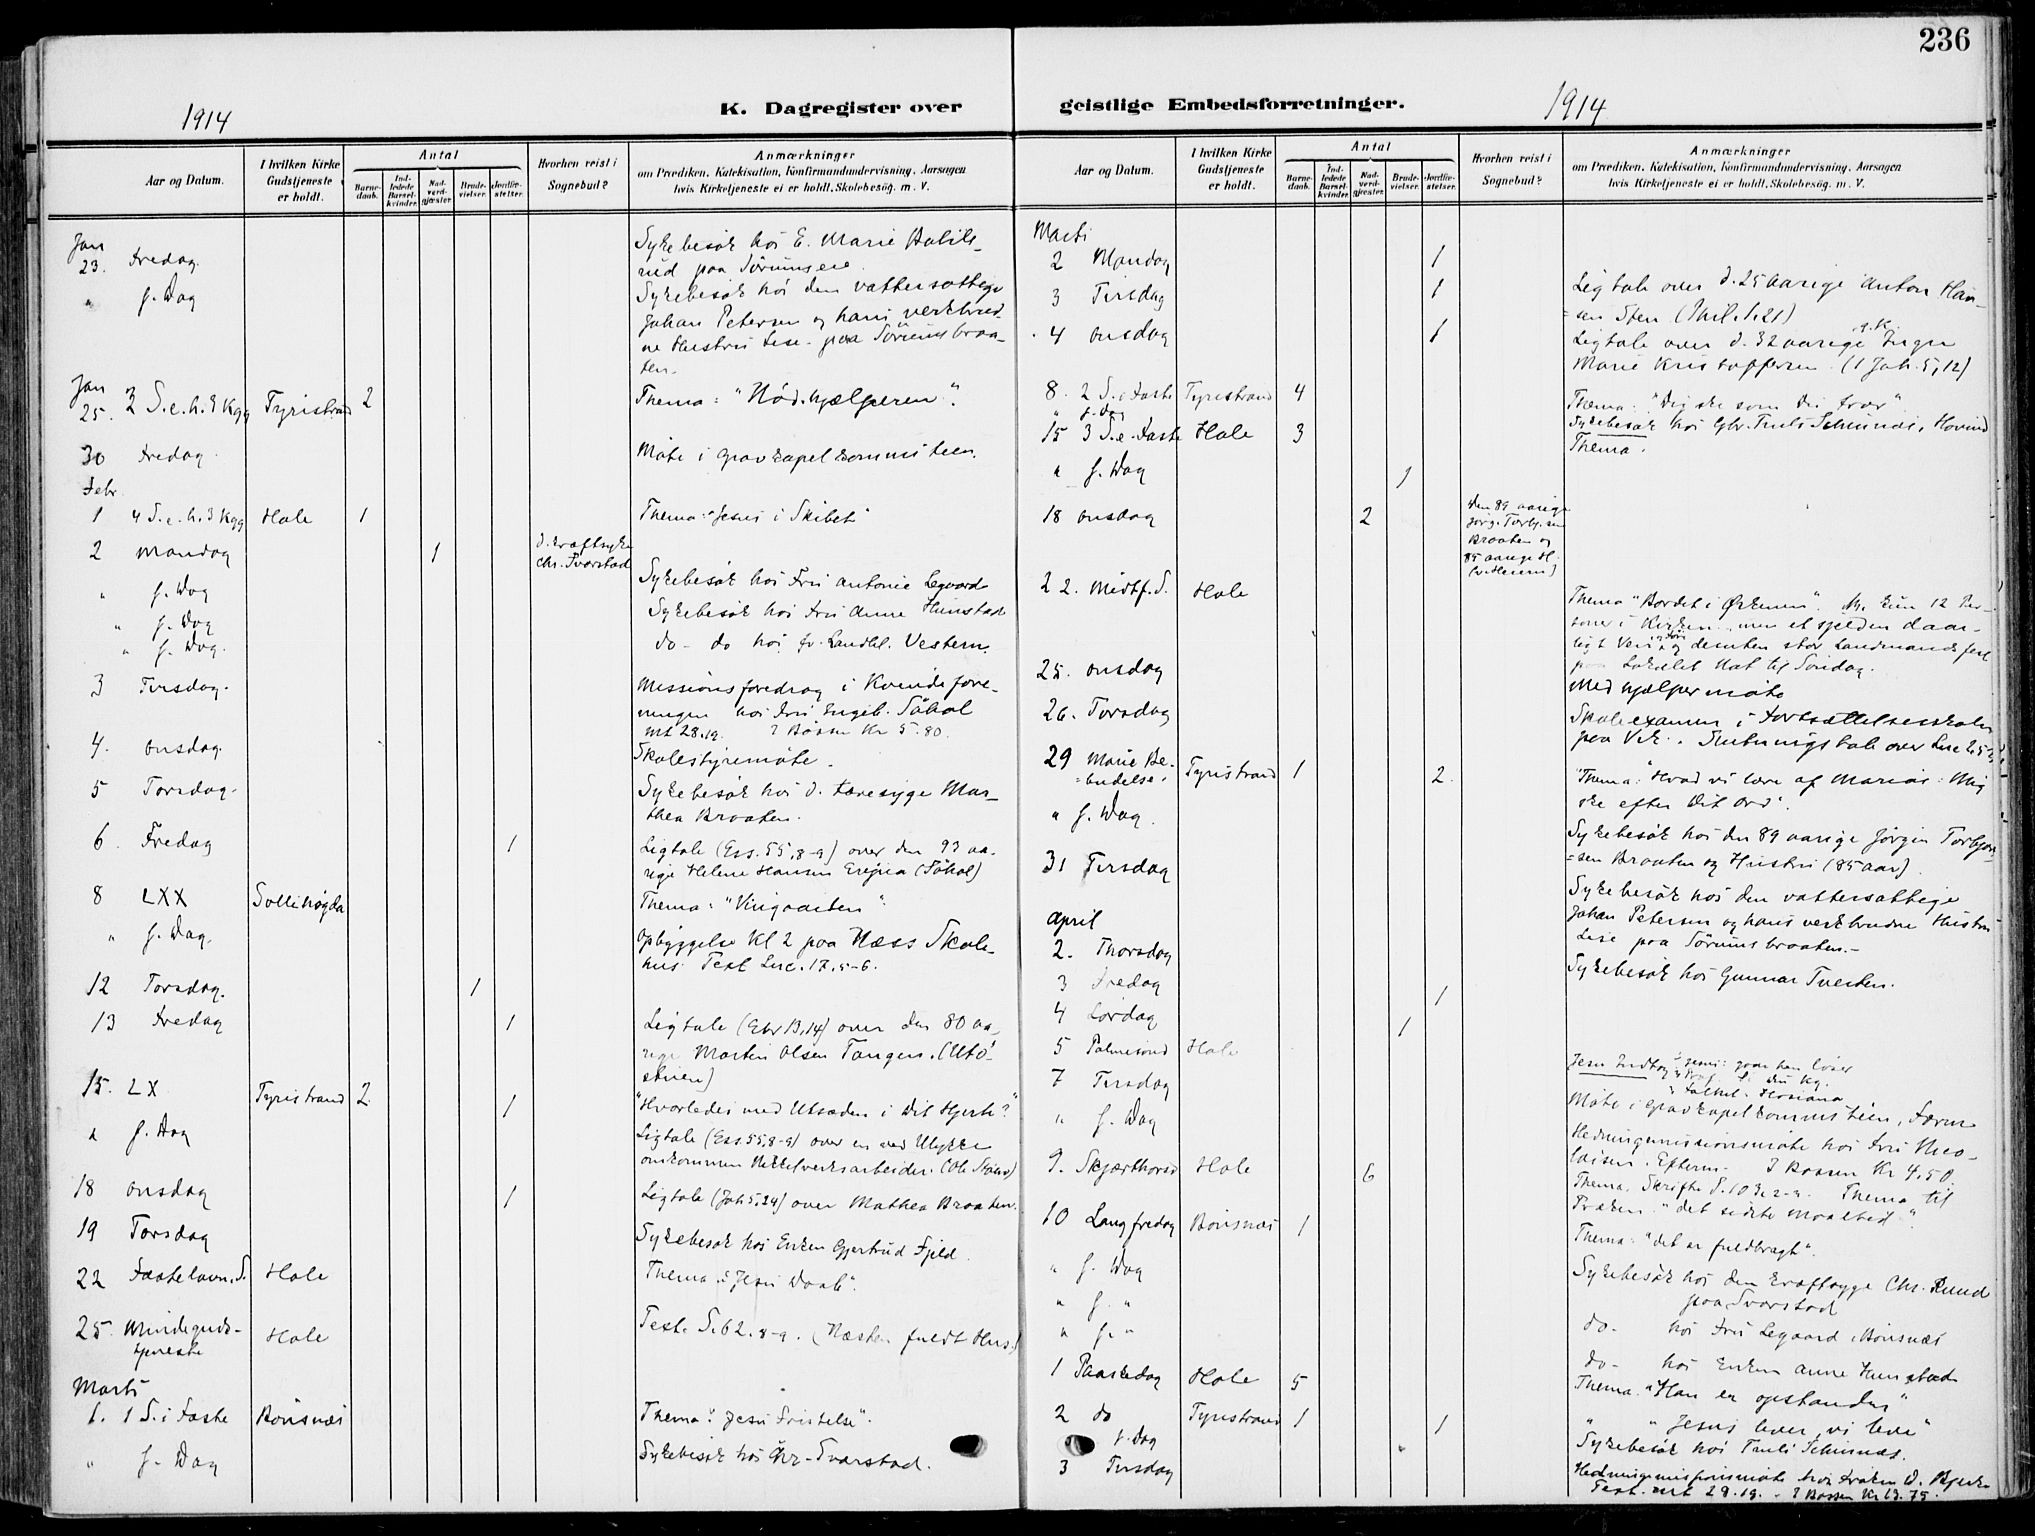 236
1914
K. Dagregister over
geistlige Embedsforretninger.
1914
Aar og Datum.
I hvilken Kirke Gudstjeneste er holdt.
Antal
Barne-daab.
Ind-ledede Barsel-kvinder.
Nad-verd-gjæster.
Brude-vielser.
Jordfæ-stelser.
Hvorhen reist i Sognebud?
Anmærkninger
om Prædiken, Katekisation, Konfirmandundervisning, Aarsagen
hvis Kirketjeneste ei er holdt, Skolebesög. m. V.
Jan
23. Fredag. Sykebesök hos E. Marie
rud paa Sörumseie
" s. Dag Sykebesök hos den vattersottige
Johan Petersen og hans verkbrud-
ne Hustru Lise paa Sörumsbraa-
ten.
Jan
25. 3 S. e. h. 3 Kgg Tyristrand 2 Thema: "Nödhjælperen".
30 Fredag Möte i gravkapelkommiteen.
Febr
1 4 S. e. h. 3 Kgg Hole 1 Thema: "Jesus i Skibet"
2 Mandag 1 d. kræftsyke
Chr. Svarstad
" s. Dag Sykebesök hos Fru Antonie Legaard
" s. Dag Sykebesök hos Fru Anne Hunstad
" s. Dag. do - do hos fv. Landhl. Vestern.
3 Tirsdag. Missionsforedrag i Kvindefore-
ningen hos Fru Engeb. Söhol
Mt 28.19. I Bössen Kr 5.80.
4. Onsdag. Skolestyremöte.
5 Torsdag. Sykebesök hos d. tæresyge Mar-
thea Braaten.
6. Fredag 1 Ligtale (Ess. 55,8-9) over den 93 aa-
rige Helene Hansen (Söhol)
8 LXX Sollihögda Thema: "Vingaarden"
" s. Dag. Opbyggelse Kl 2 paa Næss Skole-
hus. Text Luc. 17.5-6.
12 Torsdag. 1
13 Fredag 1 Ligtale (Ebr 13,14) over den 80 aa-
rige Martin Olsen Tangen. (Utö-
15. LX Tyristrand 2 "Hvorledes med Utsæden i dit Hjerte?"
" s. Dag 1 Ligtale (Ess 55,8-9) over en ved Ulykke
omkommen Nikkelverksarbeider.
18 Onsdag 1 Ligtale (Joh 5,24) over Mathea Braaten.
19 Torsdag Sykebesök hos Enken Gjertrud Fjeld.
22 Fastelavns S. Hole Thema: "Jesu Daab".
25. Mindeguds-
tjeneste Hole Text. S. 62.8-9. (Næsten fuldt Hus.)
Marts
1. 1 S. i Faste Bönsnæs Thema: "Jesu Fristelse".
" s. Dag Sykebesök hos Chr. Svarstad.
Aar og Datum.
I hvilken Kirke Gudstjeneste er holdt.
Antal
Barne-daab.
Ind-ledede Barsel-kvinder.
Nad-verd-gjæster.
Brude-vielser.
Jordfæ-stelser.
Hvorhen reist i Sognebud?
Anmærkninger
om Prædiken, Katekisation, Konfirmandundervisning, Aarsagen
hvis Kirketjeneste ei er holdt, Skolebesög. m. V.
Marts
2 Mandag 1
3 Tirsdag 1 Ligtale over d. 25 aarige Anton Han-
sen Steen
4 Onsdag 1 Ligtale over d. 32 aarige g. K. Inger
Marie Kristoffersen. (1 Joh. 5,12)
8. 2 S. i Faste Tyristrand 4 Thema: "Dig ske som du tror"
" s. Dag Sykebesök hos Gbr. Truls Hovind
15 3 S. e. Faste Hole 3 Thema.
" s. Dag 1
18 Onsdag 2 den 89 aarige
Jörg. Torbj.sen
Braaten og
85 aarige H.
22. Midtf. S. Hole Thema "Bordet i Örkenen". kun 12 Per-
soner i Kirken, men et sjelden daar-
ligt Veir, og desuten stor Landmandsfest
paa Lokalet Nat til Söndag.
25. Onsdag Medhjælpermöte
26. Torsdag Skoleexamen i Fortsættelsesskolen
paa Vik. Slutningstale over Luc 2,52
29 Marie Be-
budelse. Tyristrand 1 2. Thema: "Hvad vi lære af Marias: Mig
ske efter dit Ord".
" s. Dag. Sykebesök hos den 89 aarige Jörgen Torbjörn-
sen Braaten og Hustru (85 aar).
31 Tirsdag Sykebesök hos den vattersottige
Johan Petersen og hans verkbrudne Hustru
Lise paa Sörumsbraaten.
April
2. Thorsdag Sykebesök hos Gunnar Tveiten.
3 Fredag 1
4 Lördag 1
5 Palmesönd Hole Jesu Indtog
Hosiana
7 Tirsdag Möte i gravkapelkommiteen, Form.
" s. Dag Hedningemissionsmöte hos Fru Nico-
laisen. Efterm. I Bössen Kr 4,50.
9. Skjærthorsd Hole 6 Thema. Skrifte S. 103. 2-3. Thema til
Præken. "det sidste Maaltid".
10 Langfredag Bönsnæs 1 Thema: "det er fuldbragt".
" s. Dag Sykebesök hos den kræftsyge Chr. Ruud
paa Svarstad
" s. " do- hos Fru Legaard, Bönsnæs
" s. " do- hos Enken Anne Hunstad
1 Paaskedag Hole 5 Thema. "Han er opstanden"
2 do Tyristrand 1 1 " "Jesus lever, vi leve"
" s. Dag Sykebesök hos Truls
3 Tirsdag Hedningemissionsmöte hos Fröken D. Bjerke
Text. Mt 28.19. - I Bössen Kr 13.75.